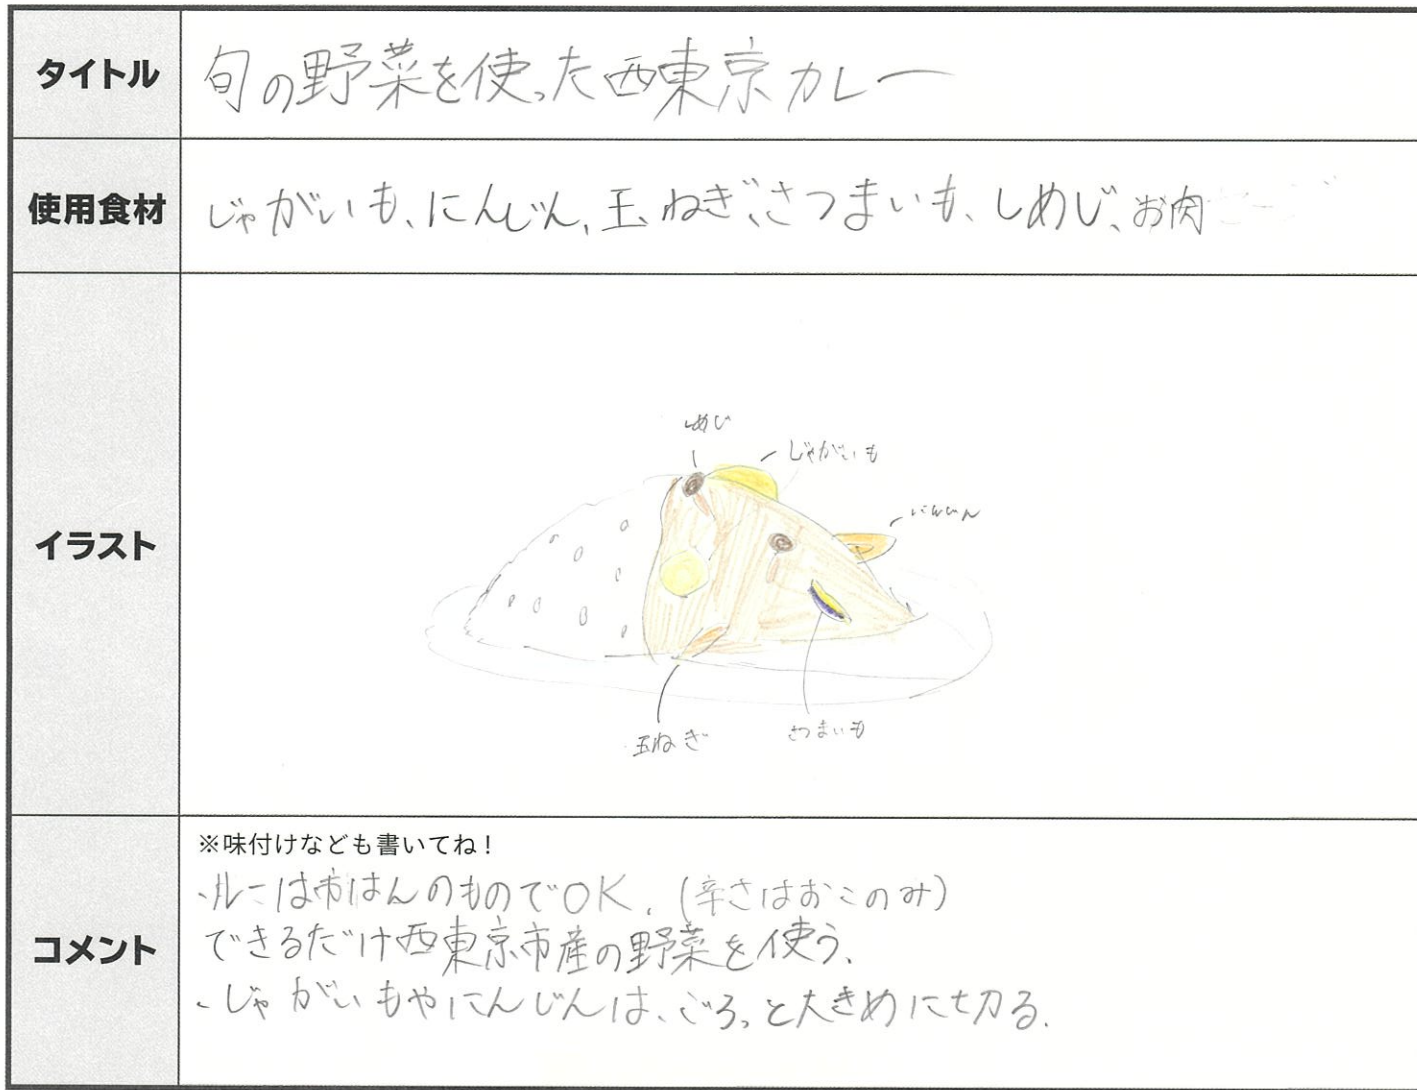 タイトル
旬の野菜を使った西東京カレー
使用食材
じゃがいも、にんじん、玉ねぎ、さつまいも、しめじ、お肉
イラスト
しめじ
じゃがいも
にんじん
玉ねぎ
さつまいも
コメント
※味付けなども書いてね!
・ルーは市はんのものでOK.(辛さはおこのみ)
できるだけ西東京市産の野菜を使う.
・じゃがいもやにんじんは、ごろっと大きめに切る.